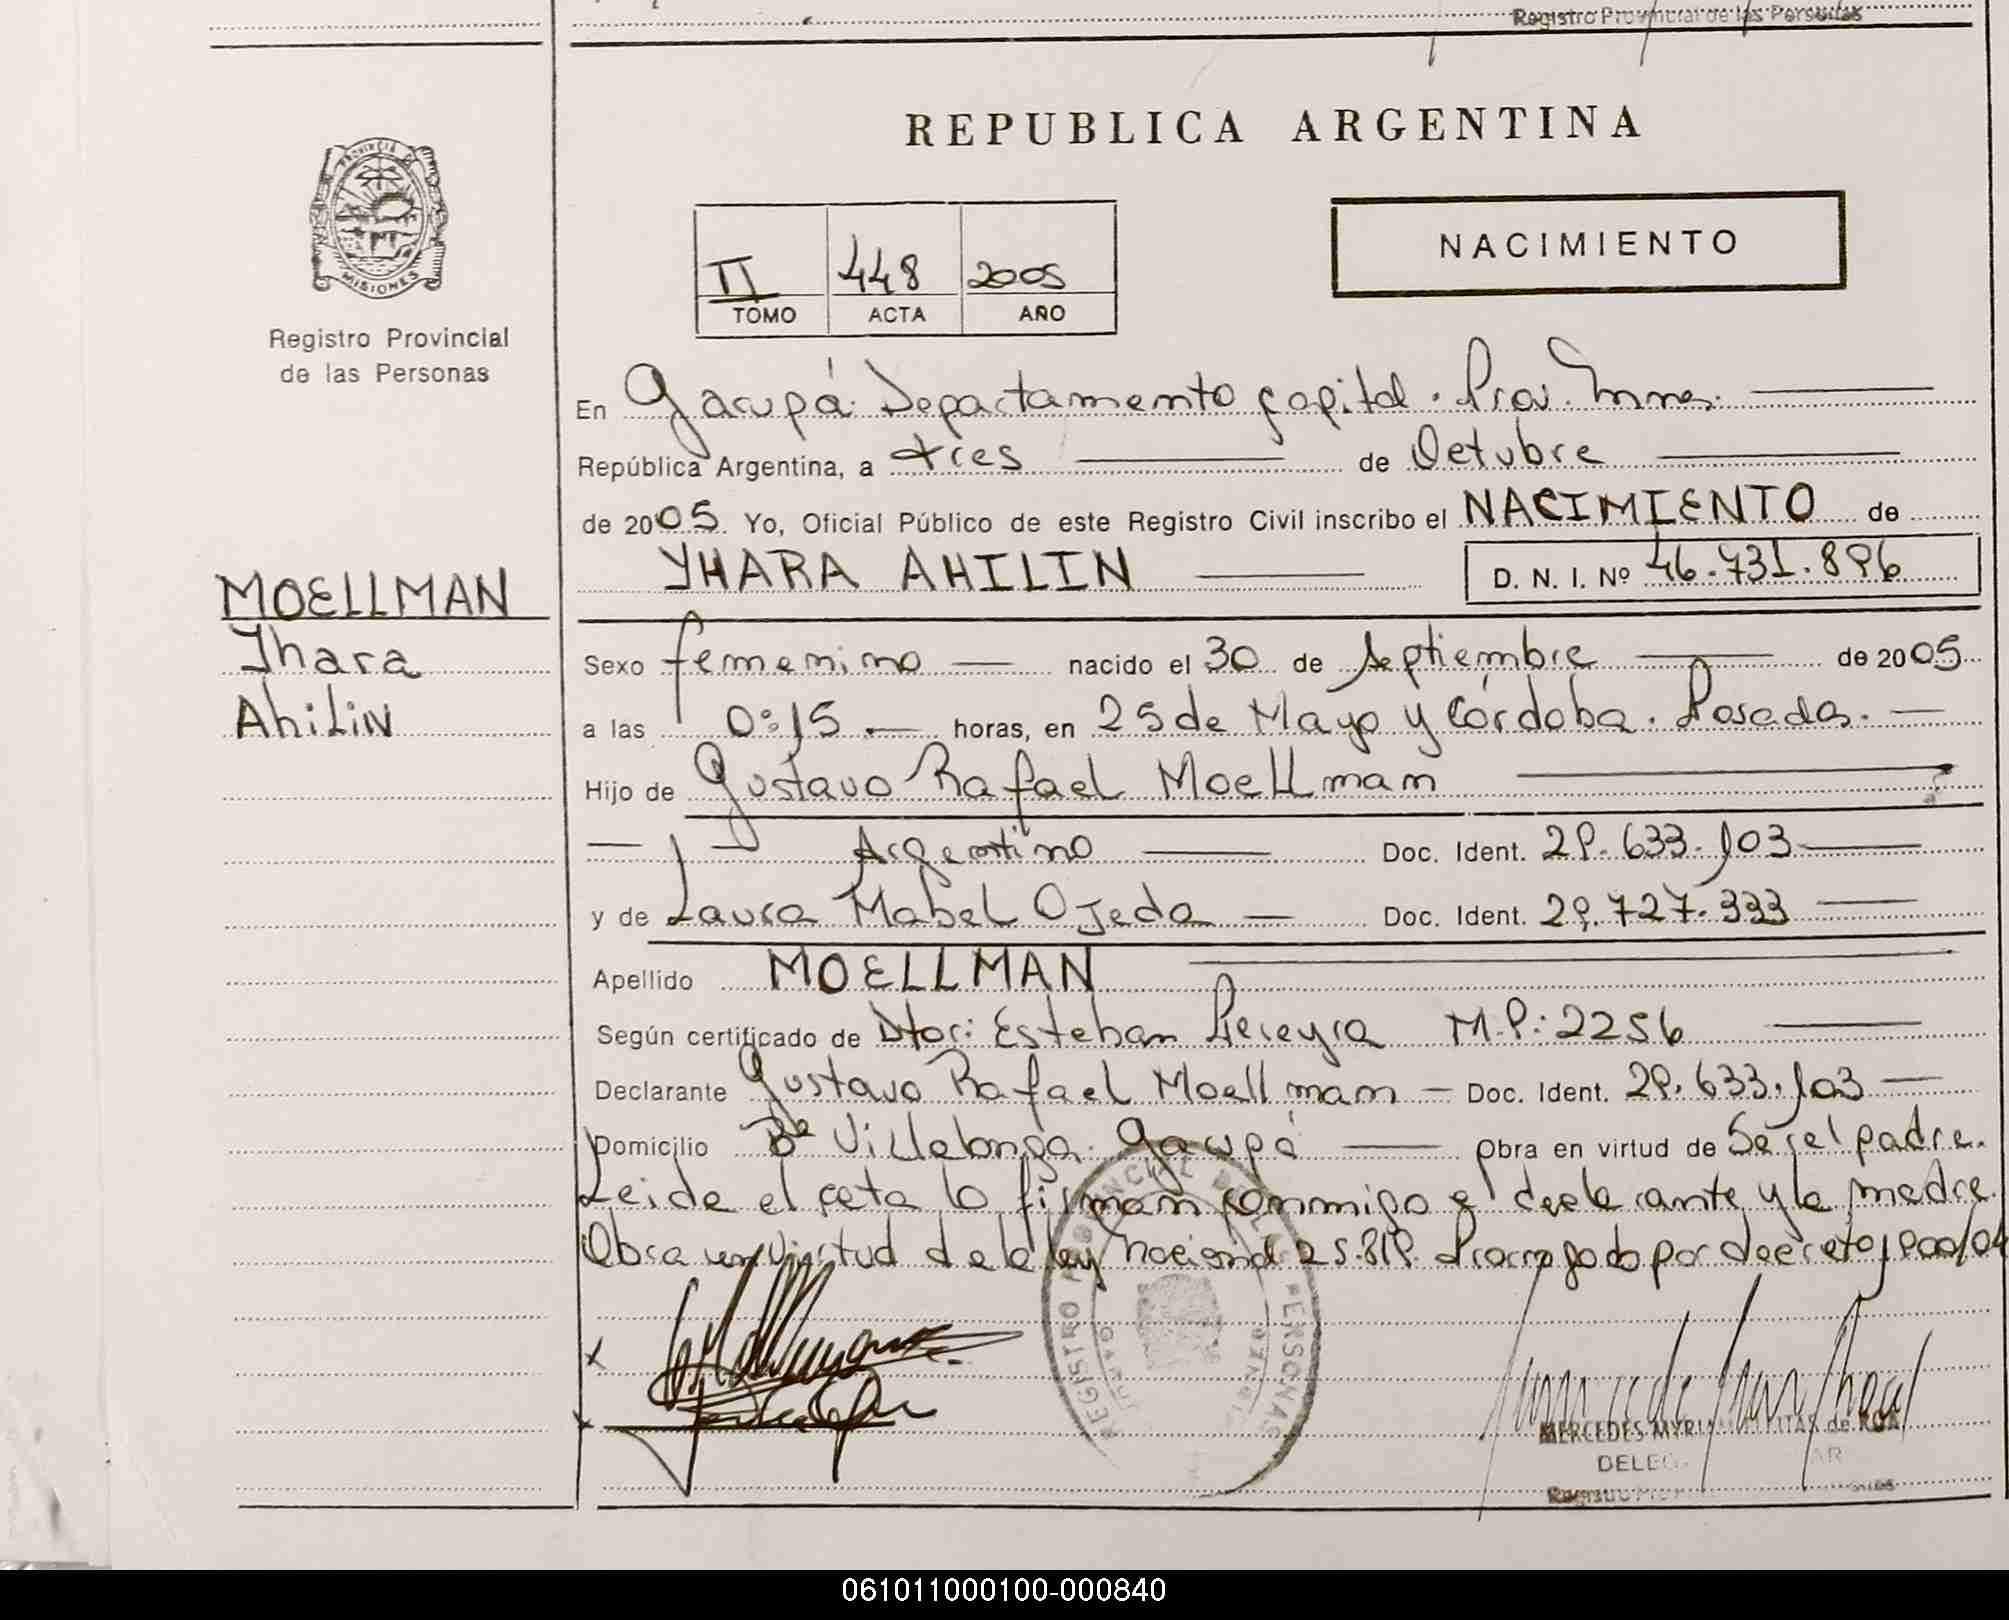 Registro Provincial de las Personas
REPUBLICA ARGENTINA
PROVINCIA DE
MISIONES
NACIMIENTO
II 448 2005
TOMO ACTA AÑO
Registro Provincial
de las Personas
En Garupá Departamento Capital. Prov. Mnes.
República Argentina, a tres de Octubre
de 2005. Yo, Oficial Público de este Registro Civil inscribo el NACIMIENTO de
YHARA AHILIN D. N. I. Nº 46.731.896
MOELLMAN
Yhara
Ahilin
Sexo femenino nacido el 30 de septiembre de 2005
a las 0:15 horas, en 25 de Mayo y Córdoba. Posadas.
Hijo de Gustavo Rafael Moellman
Argentino Doc. Ident. 29.633.103
y de Laura Mabel Ojeda Doc. Ident. 29.727.333
Apellido MOELLMAN
Según certificado de Dtor: Esteban Pereyra M.P: 2256
Declarante Gustavo Rafael Moellman Doc. Ident. 29.633.103
Domicilio Bº Villalonga. Garupá Obra en virtud de Ser el padre.
Leida el acta la firman conmigo el declarante y la madre.
Obra en virtud de la ley nacional 25.819. Prorrogado por decreto
REGISTRO PROVINCIAL DE LAS PERSONAS
MERCEDES MYRIAM de ROA
061011000100-000840